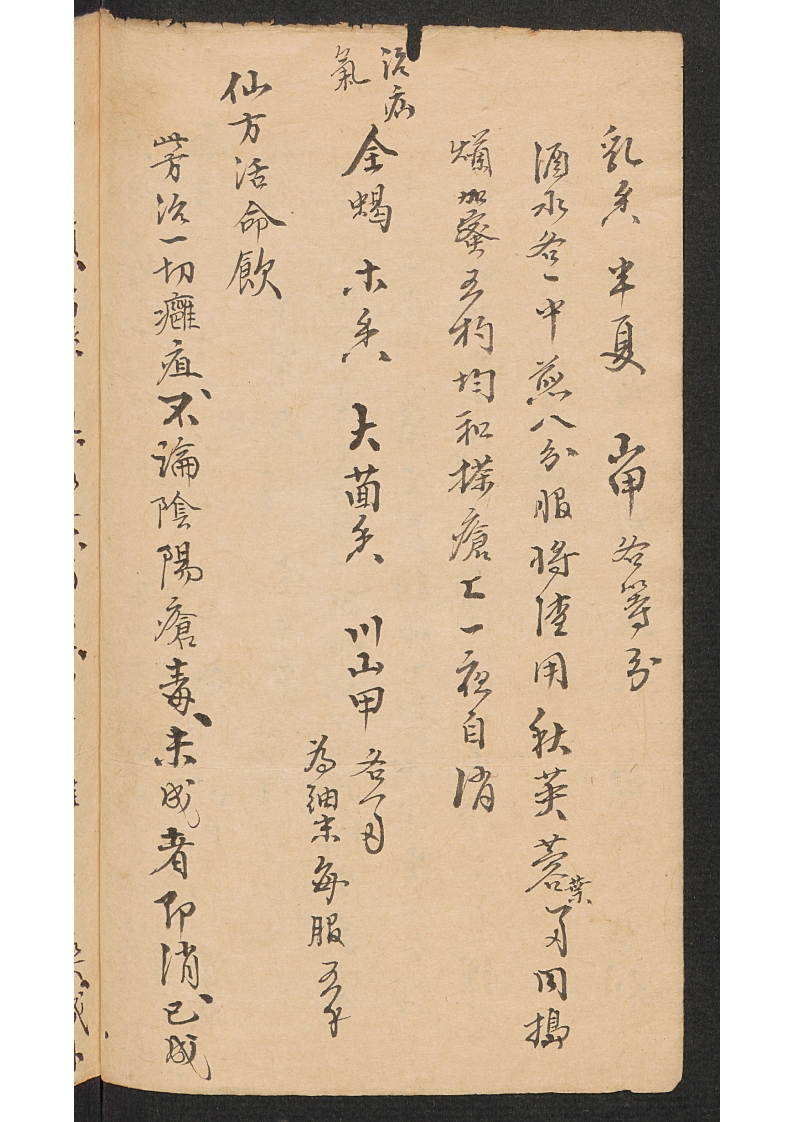 乳香 半夏 山甲各等分
酒水各一中煎八分服將渣用秋芙蓉葉 同搗
爛加蜜五杓均和搽瘡上一夜自消
治疝
氣
全蝎 木香 大茴香 川山甲各一
為細末每服
仙方活命飲
此方治一切癰疽不論陰陽瘡毒未成者即消已成